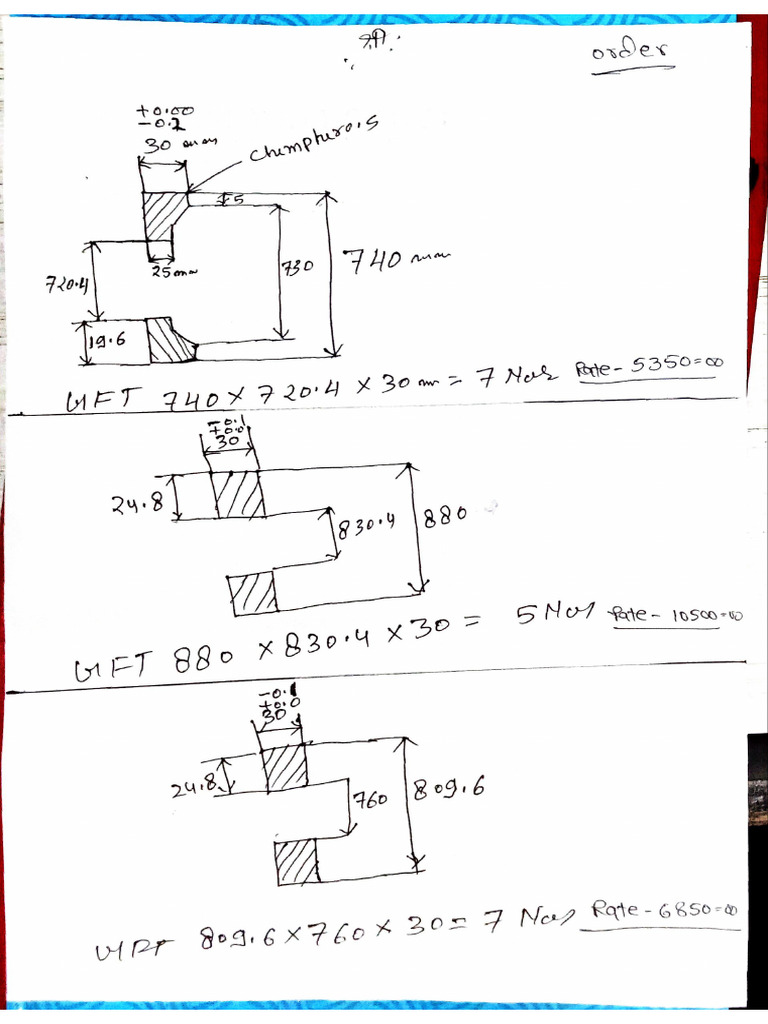 order
+0.00
-0.2
30 mm
Chempher0.5
5
25mm
720.4
730
740 mm
19.6
740 X 720.4 X 30 mm = 7 Nos Rate - 5350=00
-0.1
+0.0
30
24.8
830.4
880
880 X 830.4 X 30 = 5 Nos Rate - 10500=00
-0.1
+0.0
30
24.8
760
809.6
809.6 X 760 X 30 = 7 Nos Rate - 6850=00